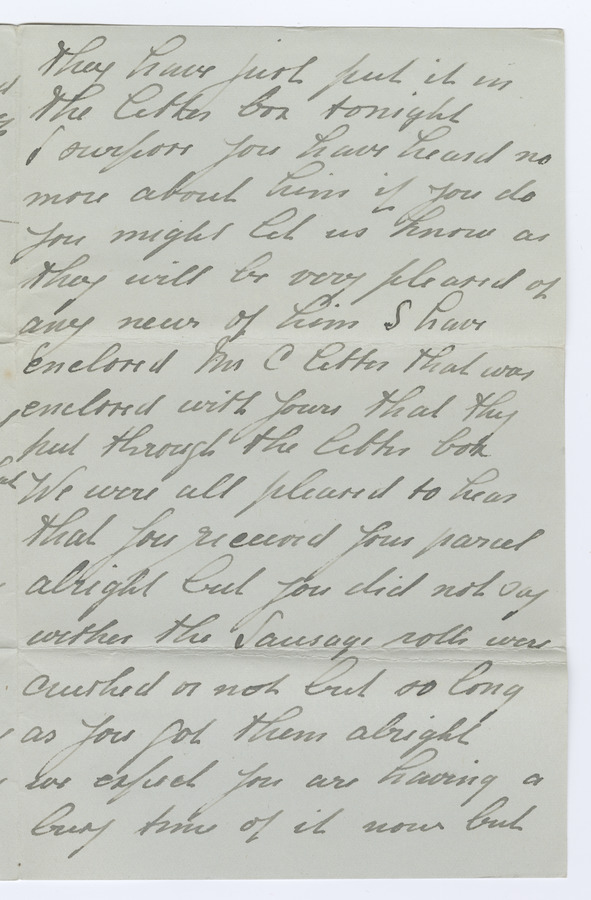 they have just put it in
the letter box tonight
I surpose you have heard no
more about him if you do
you might let us know as
they will be very pleased of
any news of him I have
enclosed Mrs C letter that was
enclosed with yours that they
put through the letter box
We were all pleased to hear
that you received your parcel
alright but you did not say
wether the Sausage rolls were
crushed or not but so long
as you got them alright
we expect you are having a
busy time of it now but